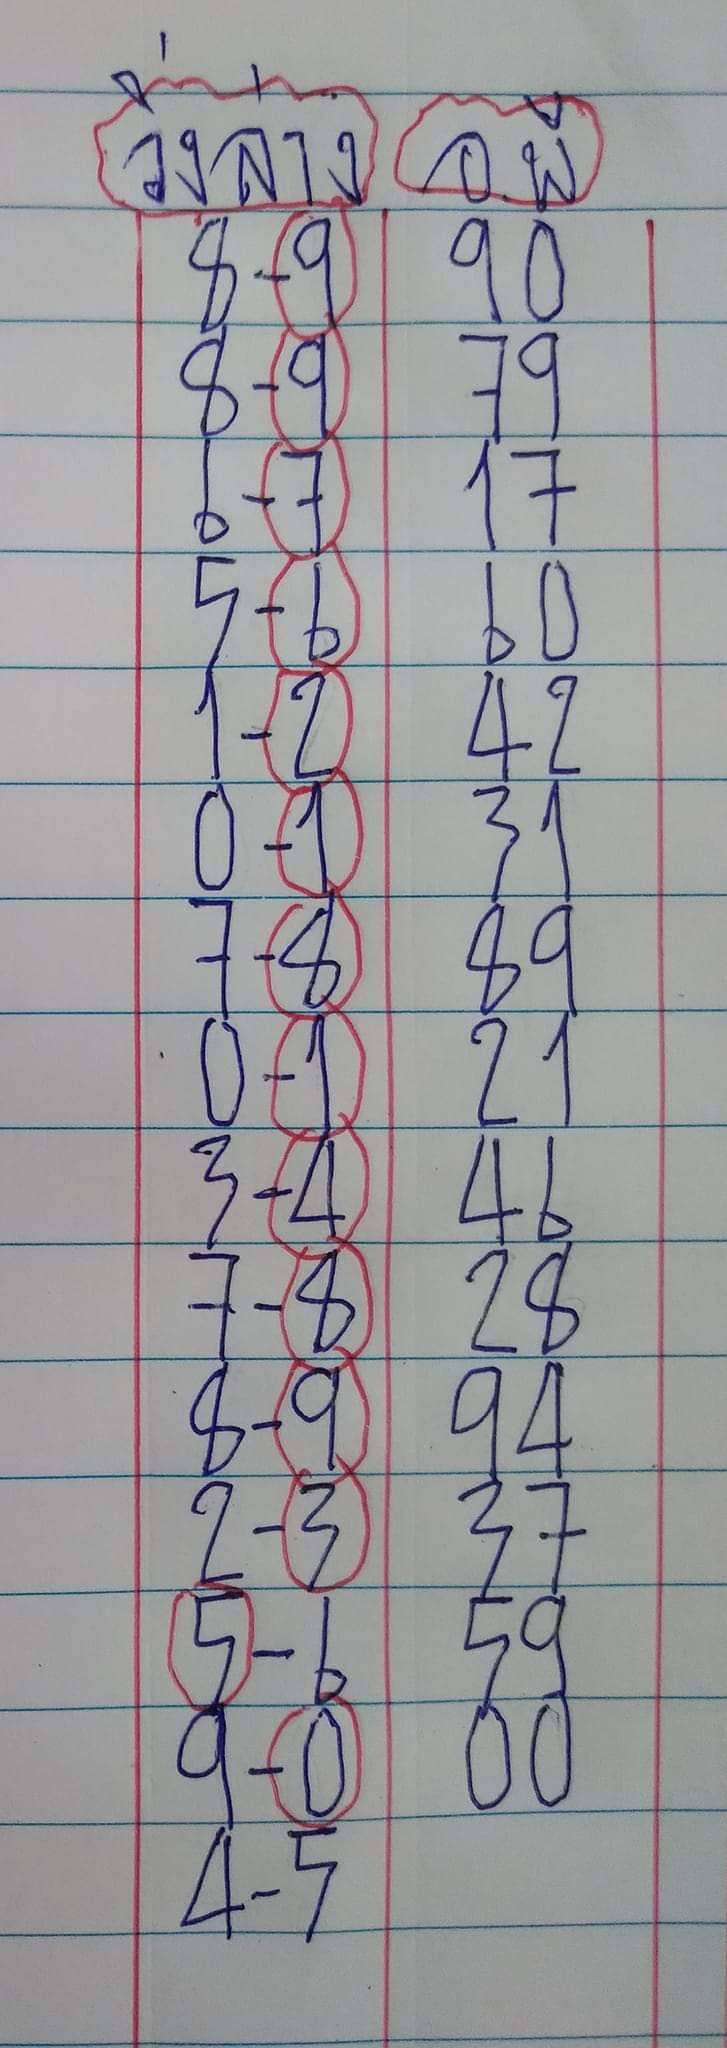 วิ่งล่าง
8-9 90
8-9 79
6-7 17
5-6 60
1-2 42
0-1 31
7-8 89
0-1 21
3-4 46
7-8 28
8-9 94
2-3 37
5-6 59
9-0 00
4-5